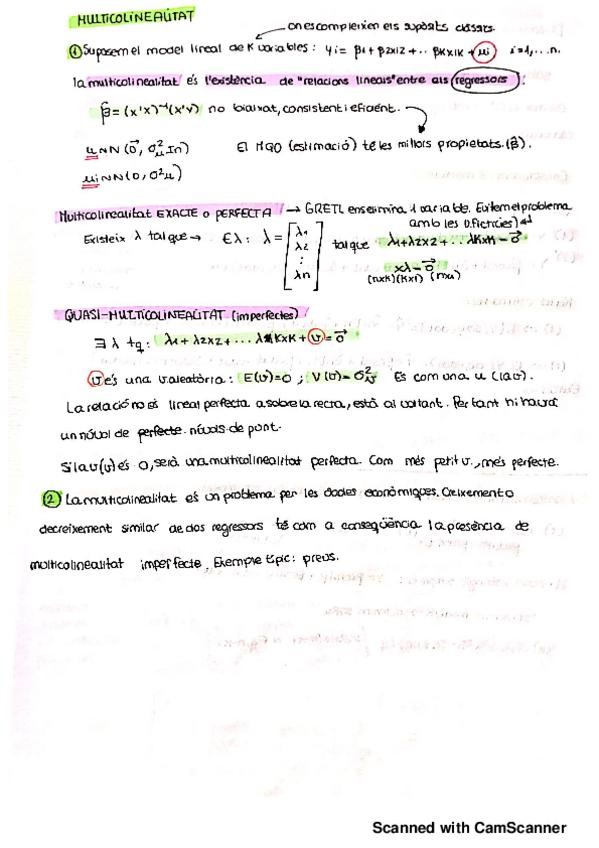 MULTICOLINEALITAT
on es compleixen els supòsits clàssics.
① Suposem el model lineal de K variables: yi = β1 + β2X2i + .. βKXiK + μi i=1,...n.
la multicolinealitat és l'existència de "relacions lineals" entre els regressors:
β̂ = (x'x)⁻¹(x'y) no biaixat, consistent i eficient.
μ~N(0⃗, σ²μ In) El MQO (estimació) té les millors propietats. (β̂).
μi~N(0, σ²μ)
Multicolinealitat EXACTE o PERFECTA → GRETL ens elimina 1 variable. Evitem el problema
amb les D. fictícies)
Existeix λ tal que → ∃λ: λ = [λ1 λ2 ⋮ λn] tal que λ1 + λ2X2 + ... λKXK = 0⃗
xλ = 0⃗
(nxK)(Kx1) (nx1)
QUASI-MULTICOLINEALITAT (imperfectes)
∃ λ tq: λ1 + λ2X2 + ... λKXK + v = 0⃗
v és una v. aleatòria: E(v)=0 ; V(v)=σ²v És com una u (la v).
La relació no és lineal perfecta a sobre la recta, està al voltant. Per tant hi haurà
un núvol de perfecte. núvols de punt.
Si la v(v) és 0, serà una multicolinealitat perfecta. Com més petit v., més perfecte.
② La multicolinealitat és un problema per les dades econòmiques. Creixement o
decreixement similar de dos regressors té com a conseqüència la presència de
multicolinealitat imperfecte, Exemple típic: preus.
Scanned with CamScanner